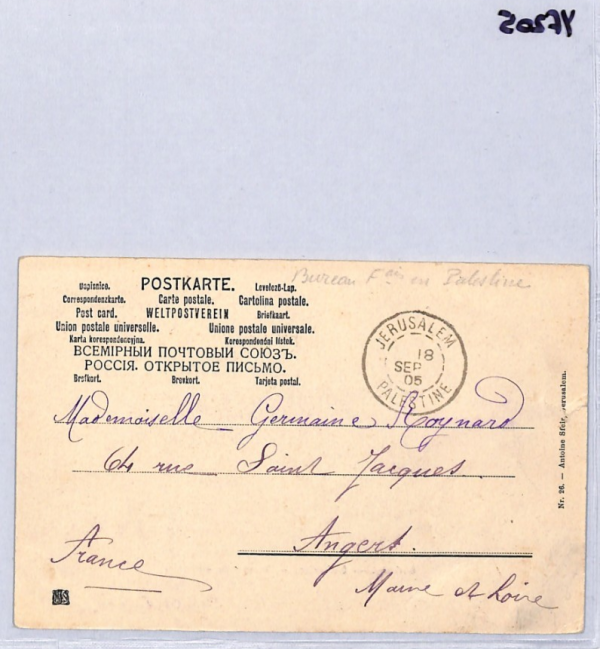 YF205Z
Bureau Fais en Palestine
Dopisnice. POSTKARTE. Levelező-Lap.
Correspondenzkarte. Carte postale. Cartolina postale.
Post card. WELTPOSTVEREIN Briefkaart.
Union postale universelle. Unione postale universale.
Karta korespondencyjna. Korespondenční lístek.
ВСЕМІРНЫЙ ПОЧТОВЫЙ СОЮЗЪ.
РОССІЯ. ОТКРЫТОЕ ПИСЬМО.
Brefkort. Brevkort. Tarjeta postal.
JERUSALEM
18
SEP
05
PALESTINE
Mademoiselle Germaine Roynard
64 rue Saint Jacques
Angers.
France
Maine et Loire
Nr. 26. — Antoine Sfeir, Jerusalem.